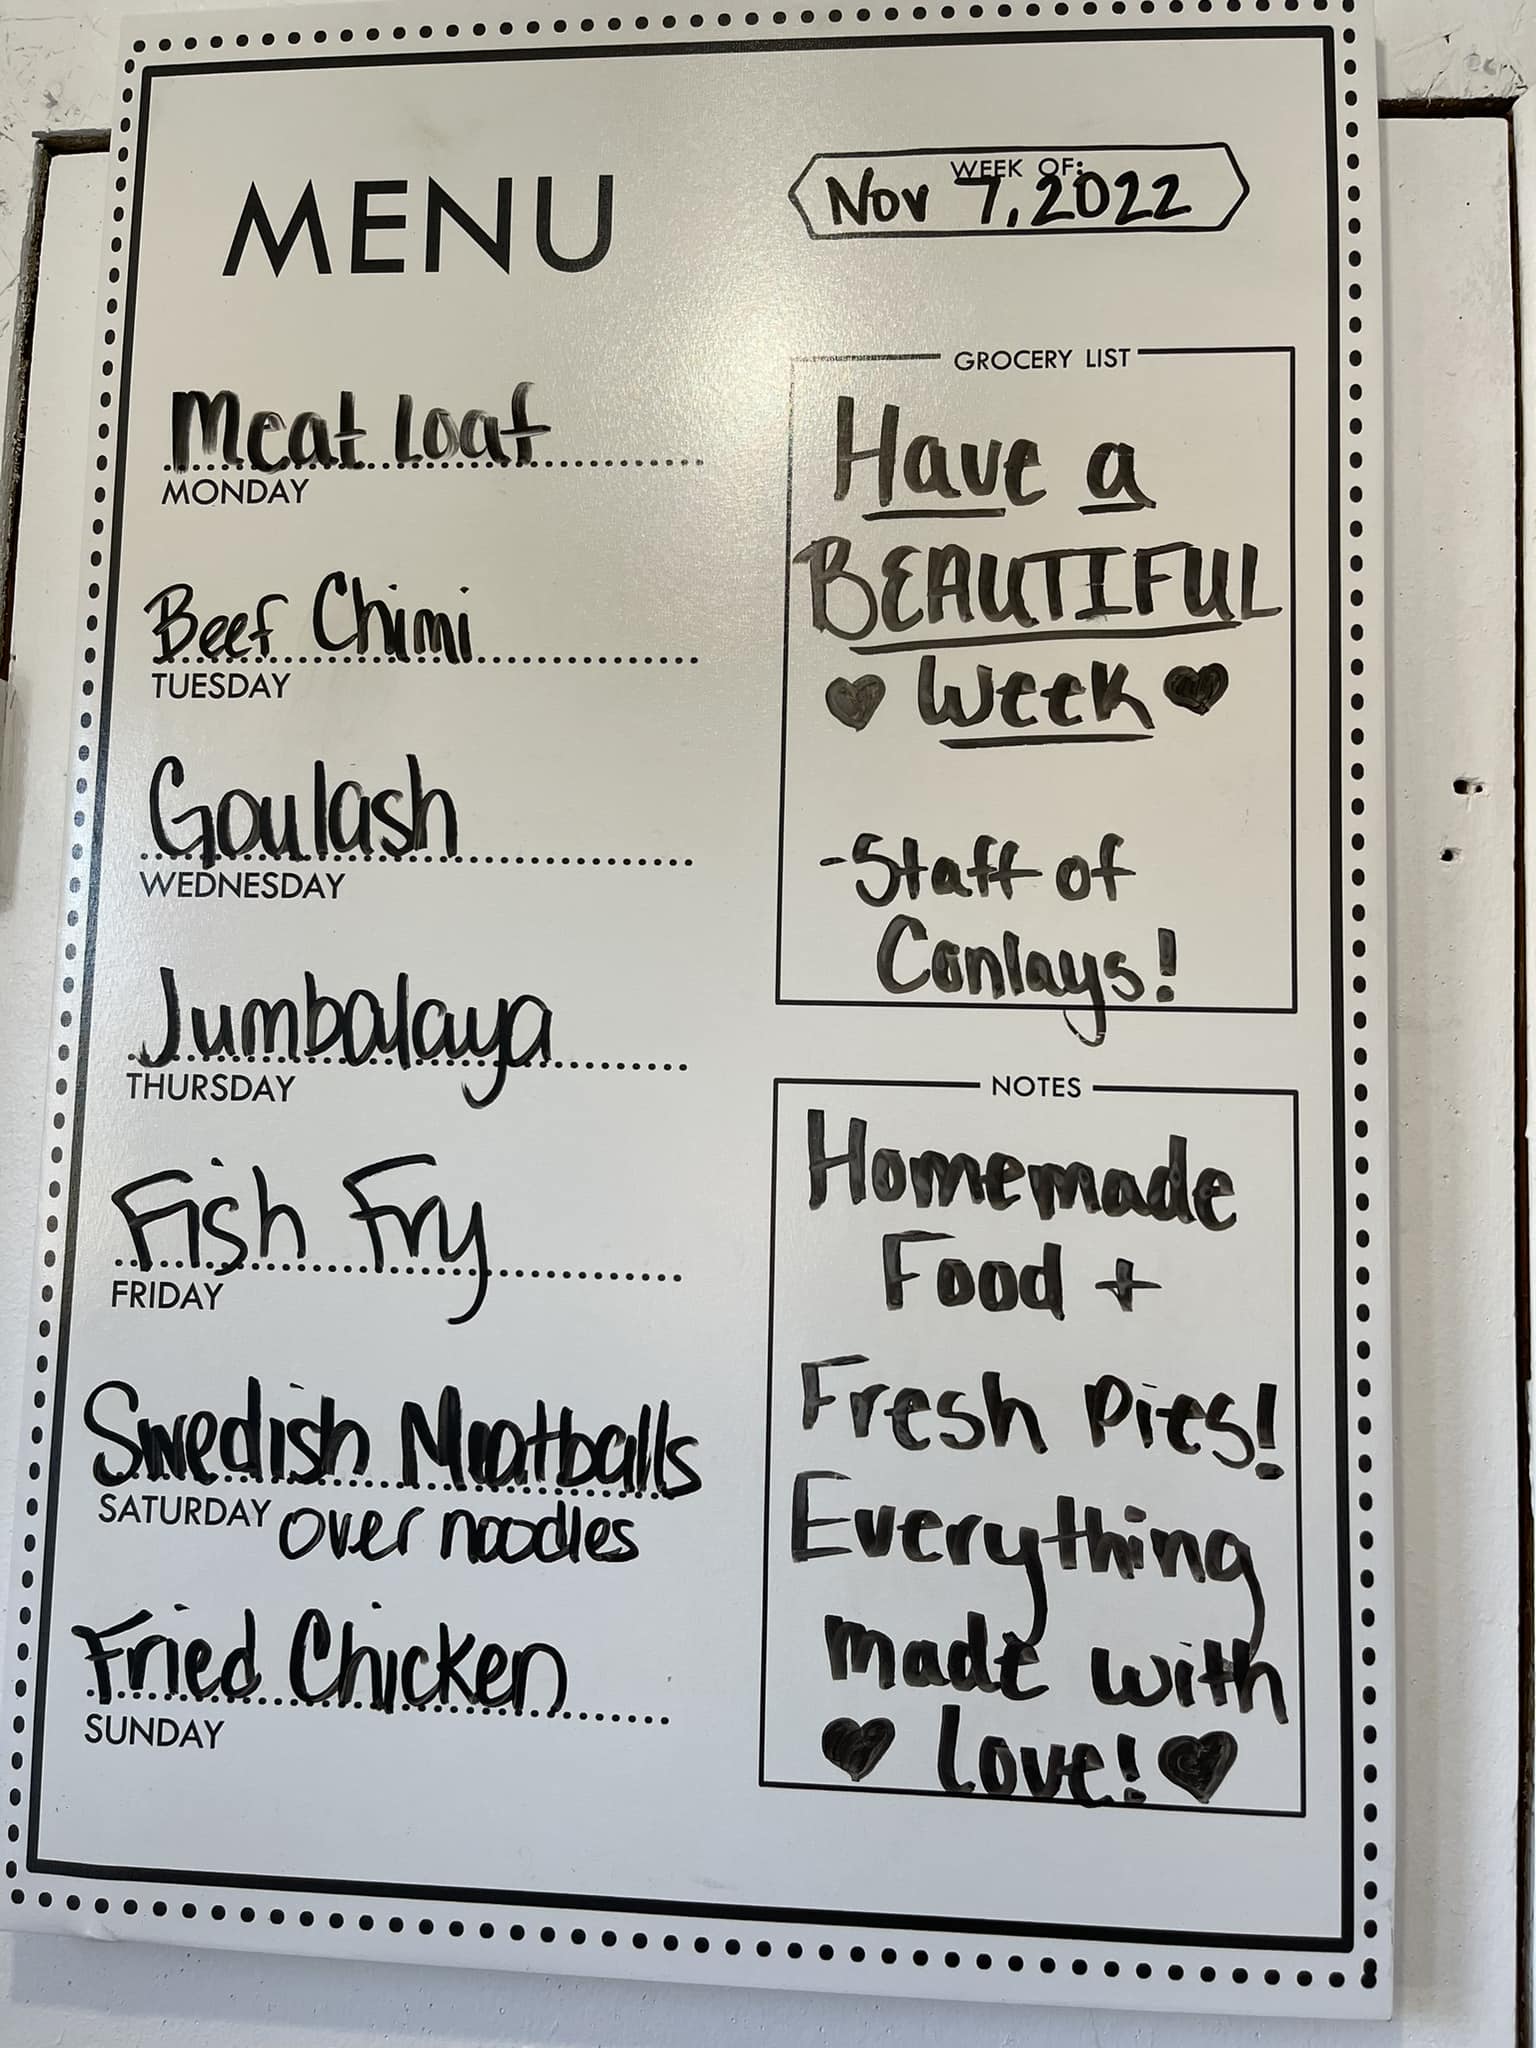 MENU
WEEK OF:
Nov 7, 2022
Meat Loaf
MONDAY
Beef Chimi
TUESDAY
Goulash
WEDNESDAY
Jumbalaya
THURSDAY
Fish Fry
FRIDAY
Swedish Meatballs
SATURDAY over noodles
Fried Chicken
SUNDAY
GROCERY LIST
Have a
BEAUTIFUL
Week
-Staff of
Conlays!
NOTES
Homemade
Food +
Fresh Pies!
Everything
made with
Love!